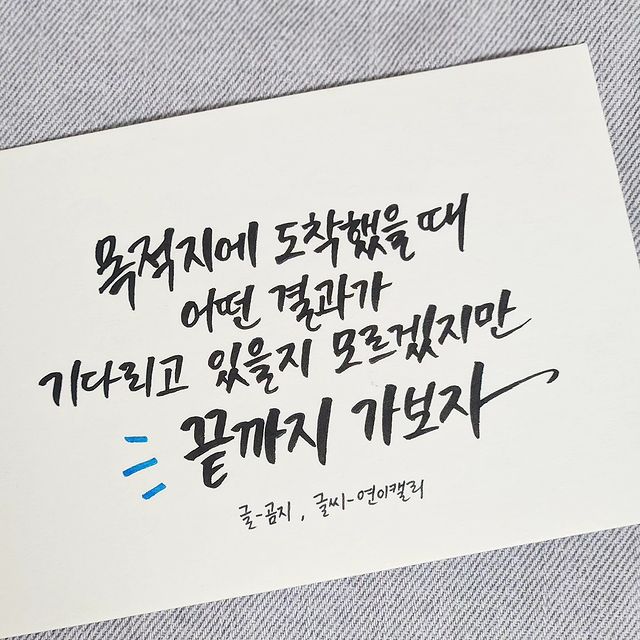 목적지에 도착했을 때
어떤 결과가
기다리고 있을지 모르겠지만
끝까지 가보자
글-곰지, 글씨-연이캘리